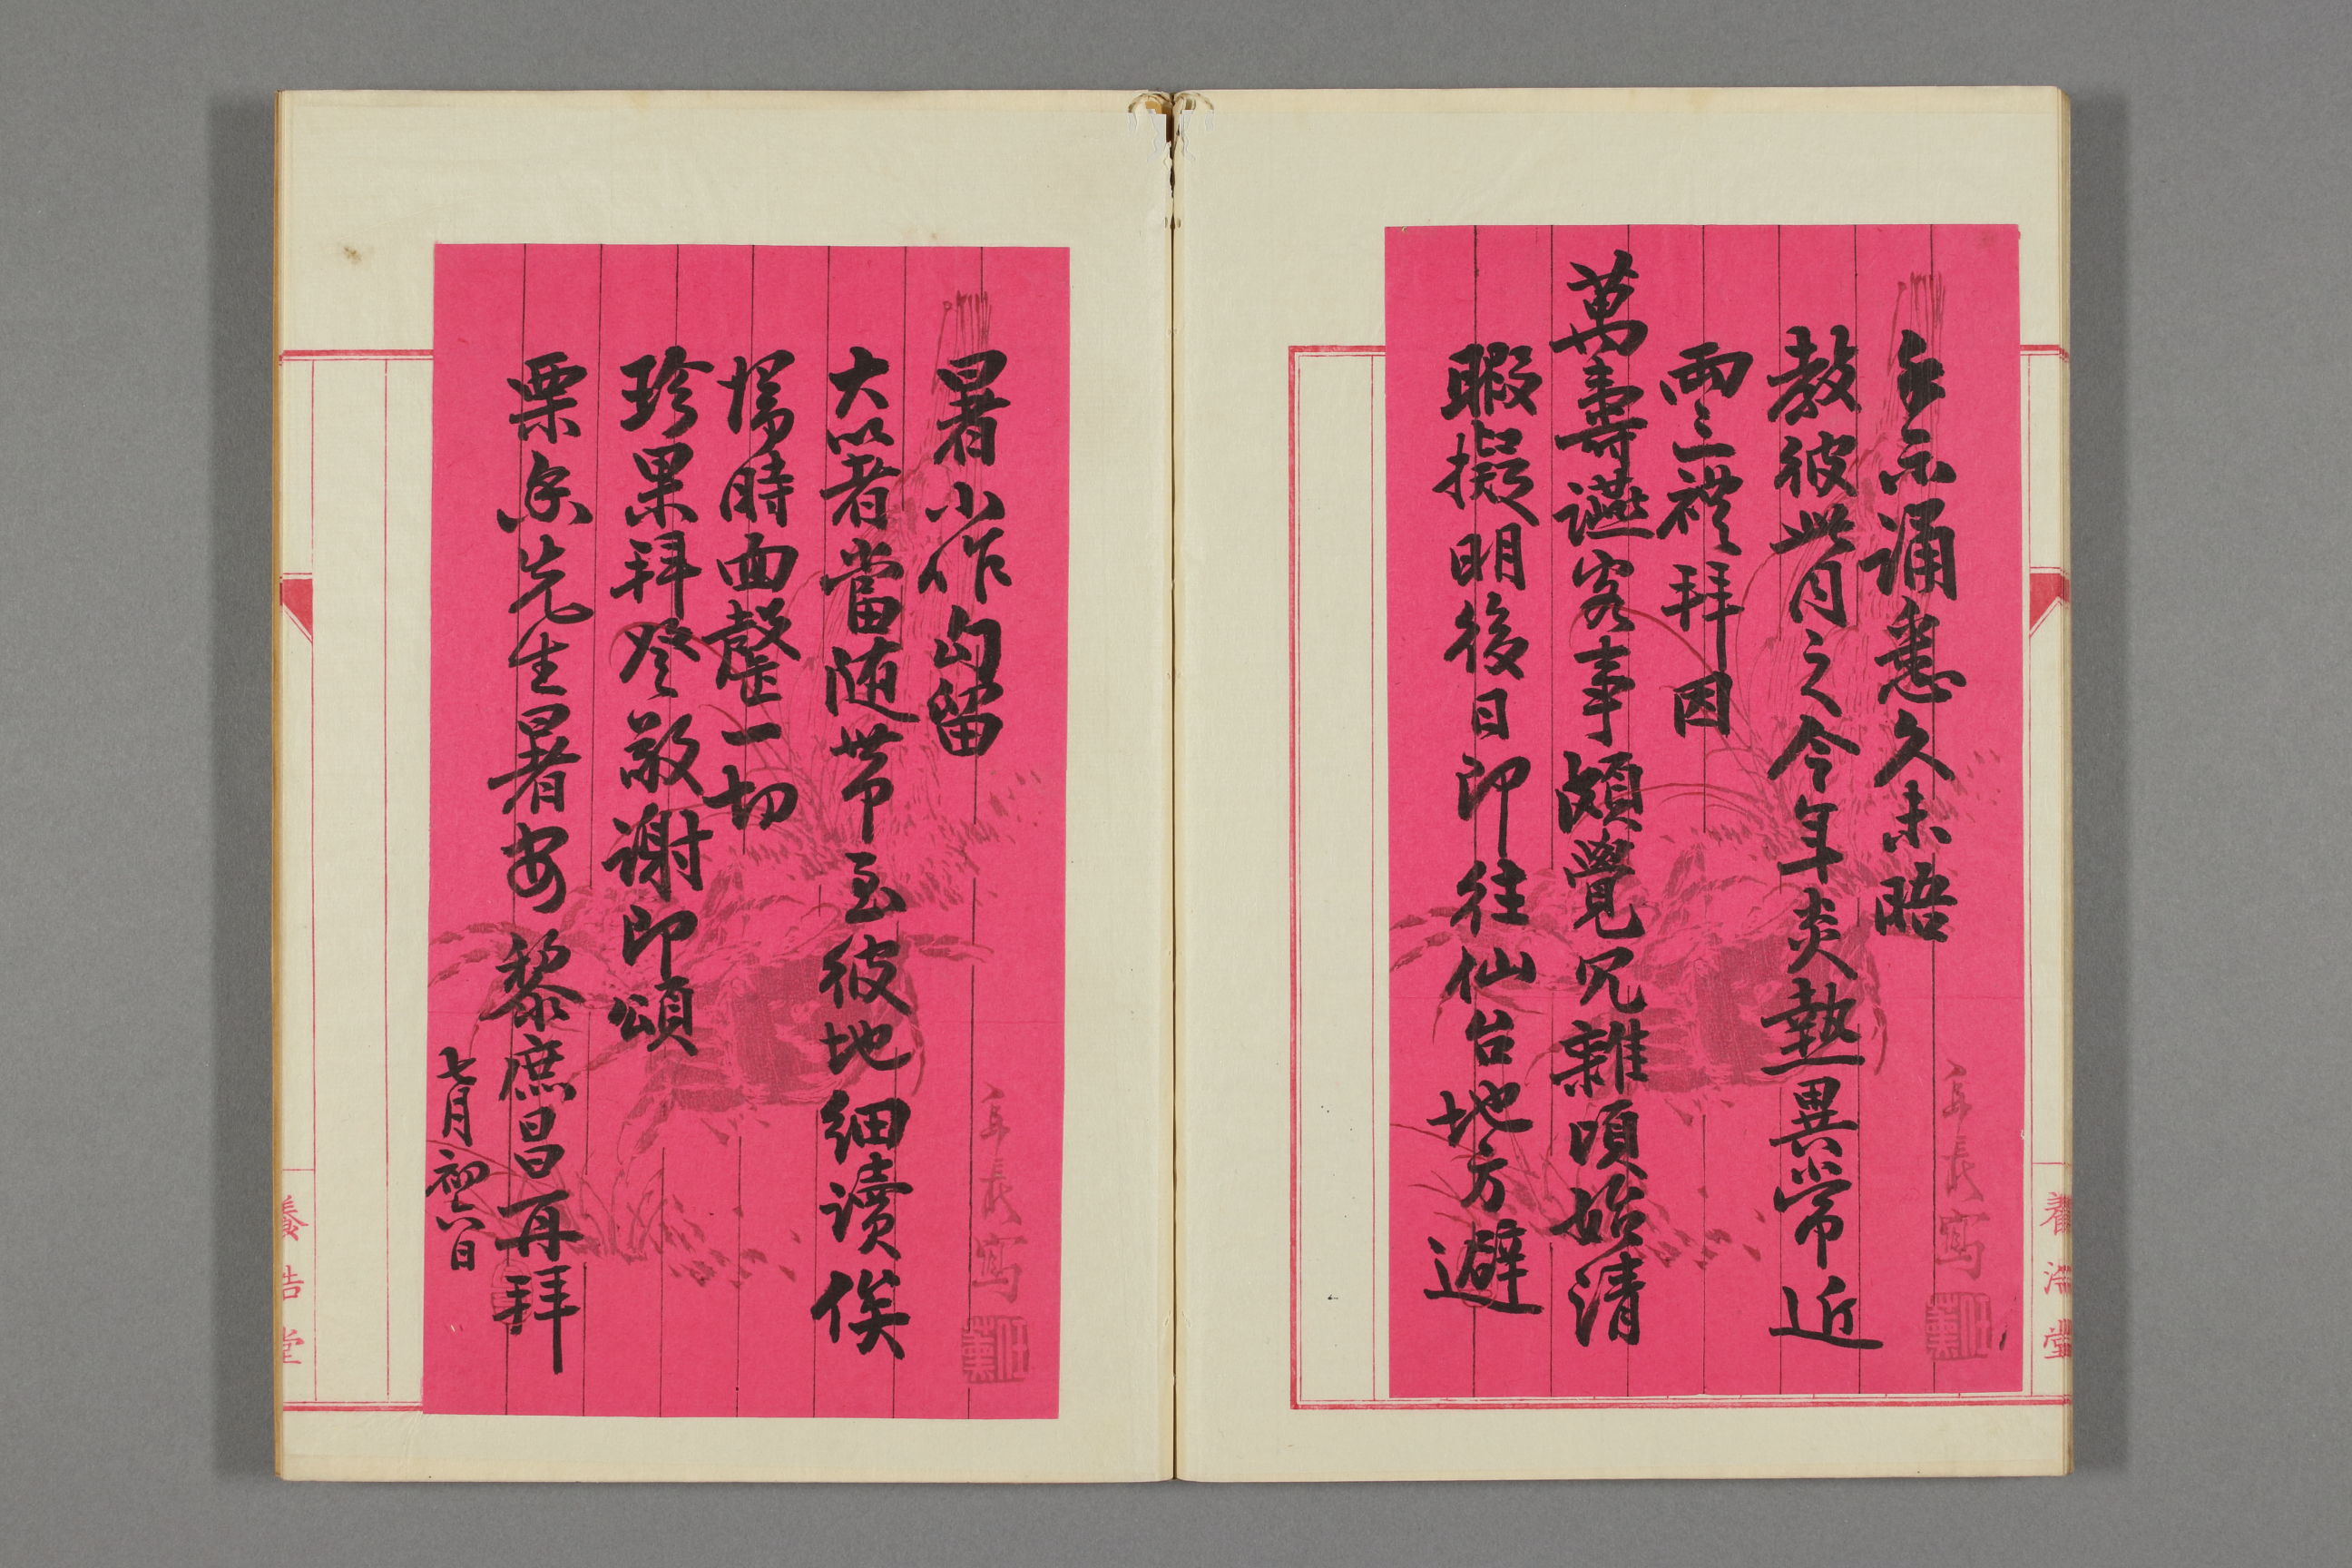 手示诵悉久未晤
教彼此月之今年炎熱異常近
兩三禮拜因
萬壽讌客事頗覺冗雜頃始清
暇擬明後日即往仙台地方避
暑小作勾留
大箸當随带至彼地細读俟
歸時面罄一切
珍果拜登敬謝即頌
栗香先生暑安 黎庶昌再拜
七月初八日
阜長寫
任薰
阜長寫
任薰
養浩堂